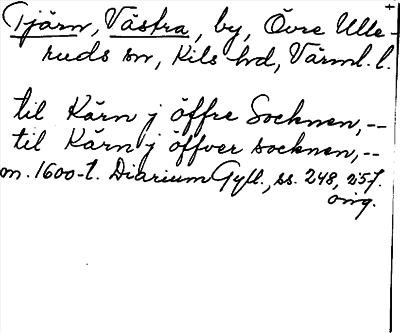 Tjärn, Västra, by, Övre Ulle-
ruds sn, Kils hd, Värml. l.
til Kärn j öffre Socknen, --
til Kärn j öffver socknen, --
m. 1600-t. Diarium Gyll., ss. 248, 257.
orig.